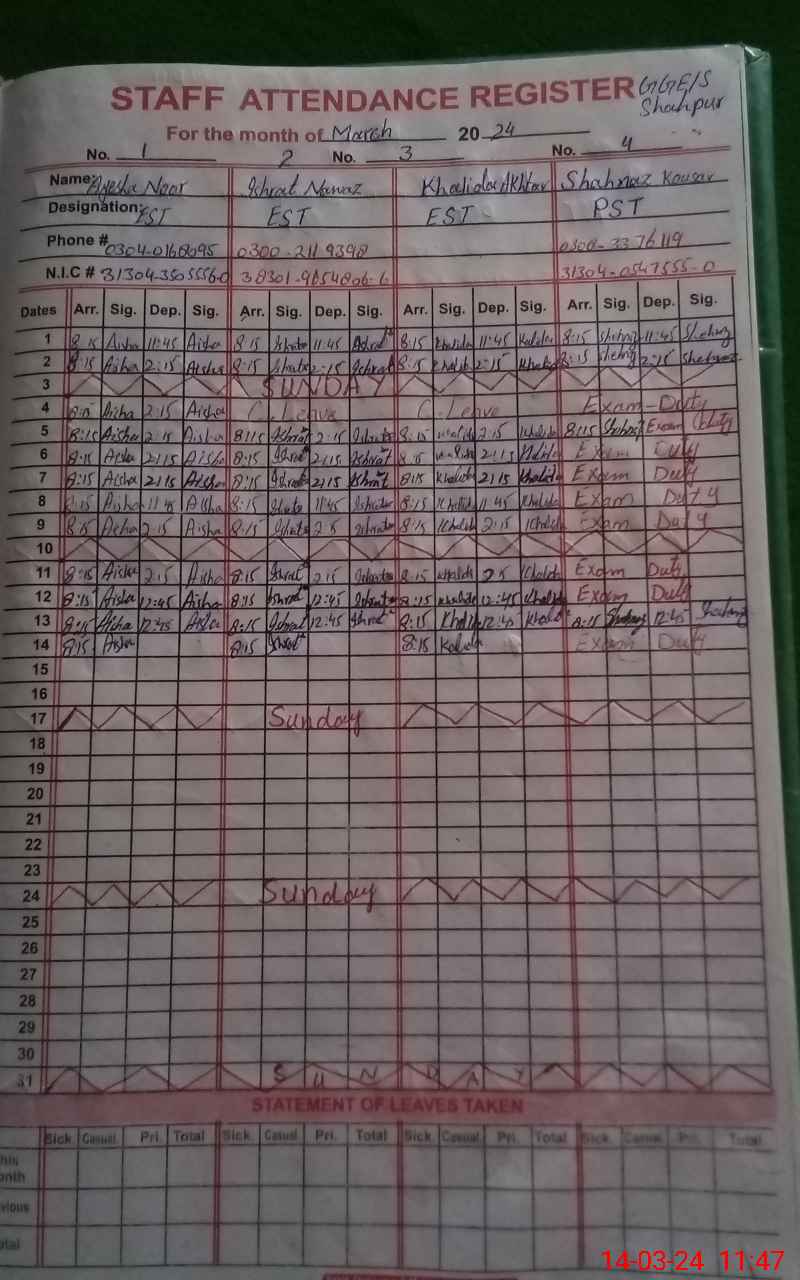 STAFF ATTENDANCE REGISTER GGE/S
Shahpur
For the month of March 2024
No. 1 2 No. 3 No. 4
Name: Ayesha Noor Ishrat Nawaz Khalida Akhtar Shahnaz Kousar
Designation: EST EST EST PST
Phone # 0304-0168095 0300-2119398 0308-3376119
N.I.C # 31304-3505556-0 38301-9654806-6 31304-0547555-0
Dates Arr. Sig. Dep. Sig. Arr. Sig. Dep. Sig. Arr. Sig. Dep. Sig. Arr. Sig. Dep. Sig.
1 8:15 Aisha 11:45 Aisha 8:15 Ishrat 11:45 Ishrat 8:15 Khalida 11:45 Khalida 8:15 Shehnaz 11:45 Shehnaz
2 8:15 Aisha 2:15 Aisha 8:15 Ishrat 2:15 Ishrat 8:15 Khalida 2:15 Khalida 8:15 Shehnaz 2:15 Shehnaz
3 SUNDAY
4 8:15 Aisha 2:15 Aisha C.Leave C.Leave Exam-Duty
5 8:15 Aisha 2:15 Aisha 8:15 Ishrat 2:15 Ishrat 8:15 Khalida 2:15 Khalida 8:15 Shehnaz Exam Duty
6 8:15 Aisha 2:15 Aisha 8:15 Ishrat 2:15 Ishrat 8:15 Khalida 2:15 Khalida Exam Duty
7 8:15 Aisha 2:15 Aisha 8:15 Ishrat 2:15 Ishrat 8:15 Khalida 2:15 Khalida Exam Duty
8 8:15 Aisha 11:45 Aisha 8:15 Ishrat 11:45 Ishrat 8:15 Khalida 11:45 Khalida Exam Duty
9 8:15 Aisha 2:15 Aisha 8:15 Ishrat 2:15 Ishrat 8:15 Khalida 2:15 Khalida Exam Duty
10
11 8:15 Aisha 2:15 Aisha 8:15 Ishrat 2:15 Ishrat 8:15 Khalida 2:15 Khalida Exam Duty
12 8:15 Aisha 12:45 Aisha 8:15 Ishrat 12:45 Ishrat 8:15 Khalida 12:45 Khalida Exam Duty
13 8:15 Aisha 12:45 Aisha 8:15 Ishrat 12:45 Ishrat 8:15 Khalida 12:45 Khalida 8:15 Shehnaz 12:45 Shehnaz
14 8:15 Aisha 8:15 Ishrat 8:15 Kalida Exam Duty
15
16
17 Sunday
18
19
20
21
22
23
24 Sunday
25
26
27
28
29
30
31 SUNDAY
STATEMENT OF LEAVES TAKEN
Sick Casual Pri. Total Sick. Casual Pri. Total Sick. Casual Pri. Total Sick. Casual Pri. Total
14-03-24 11:47